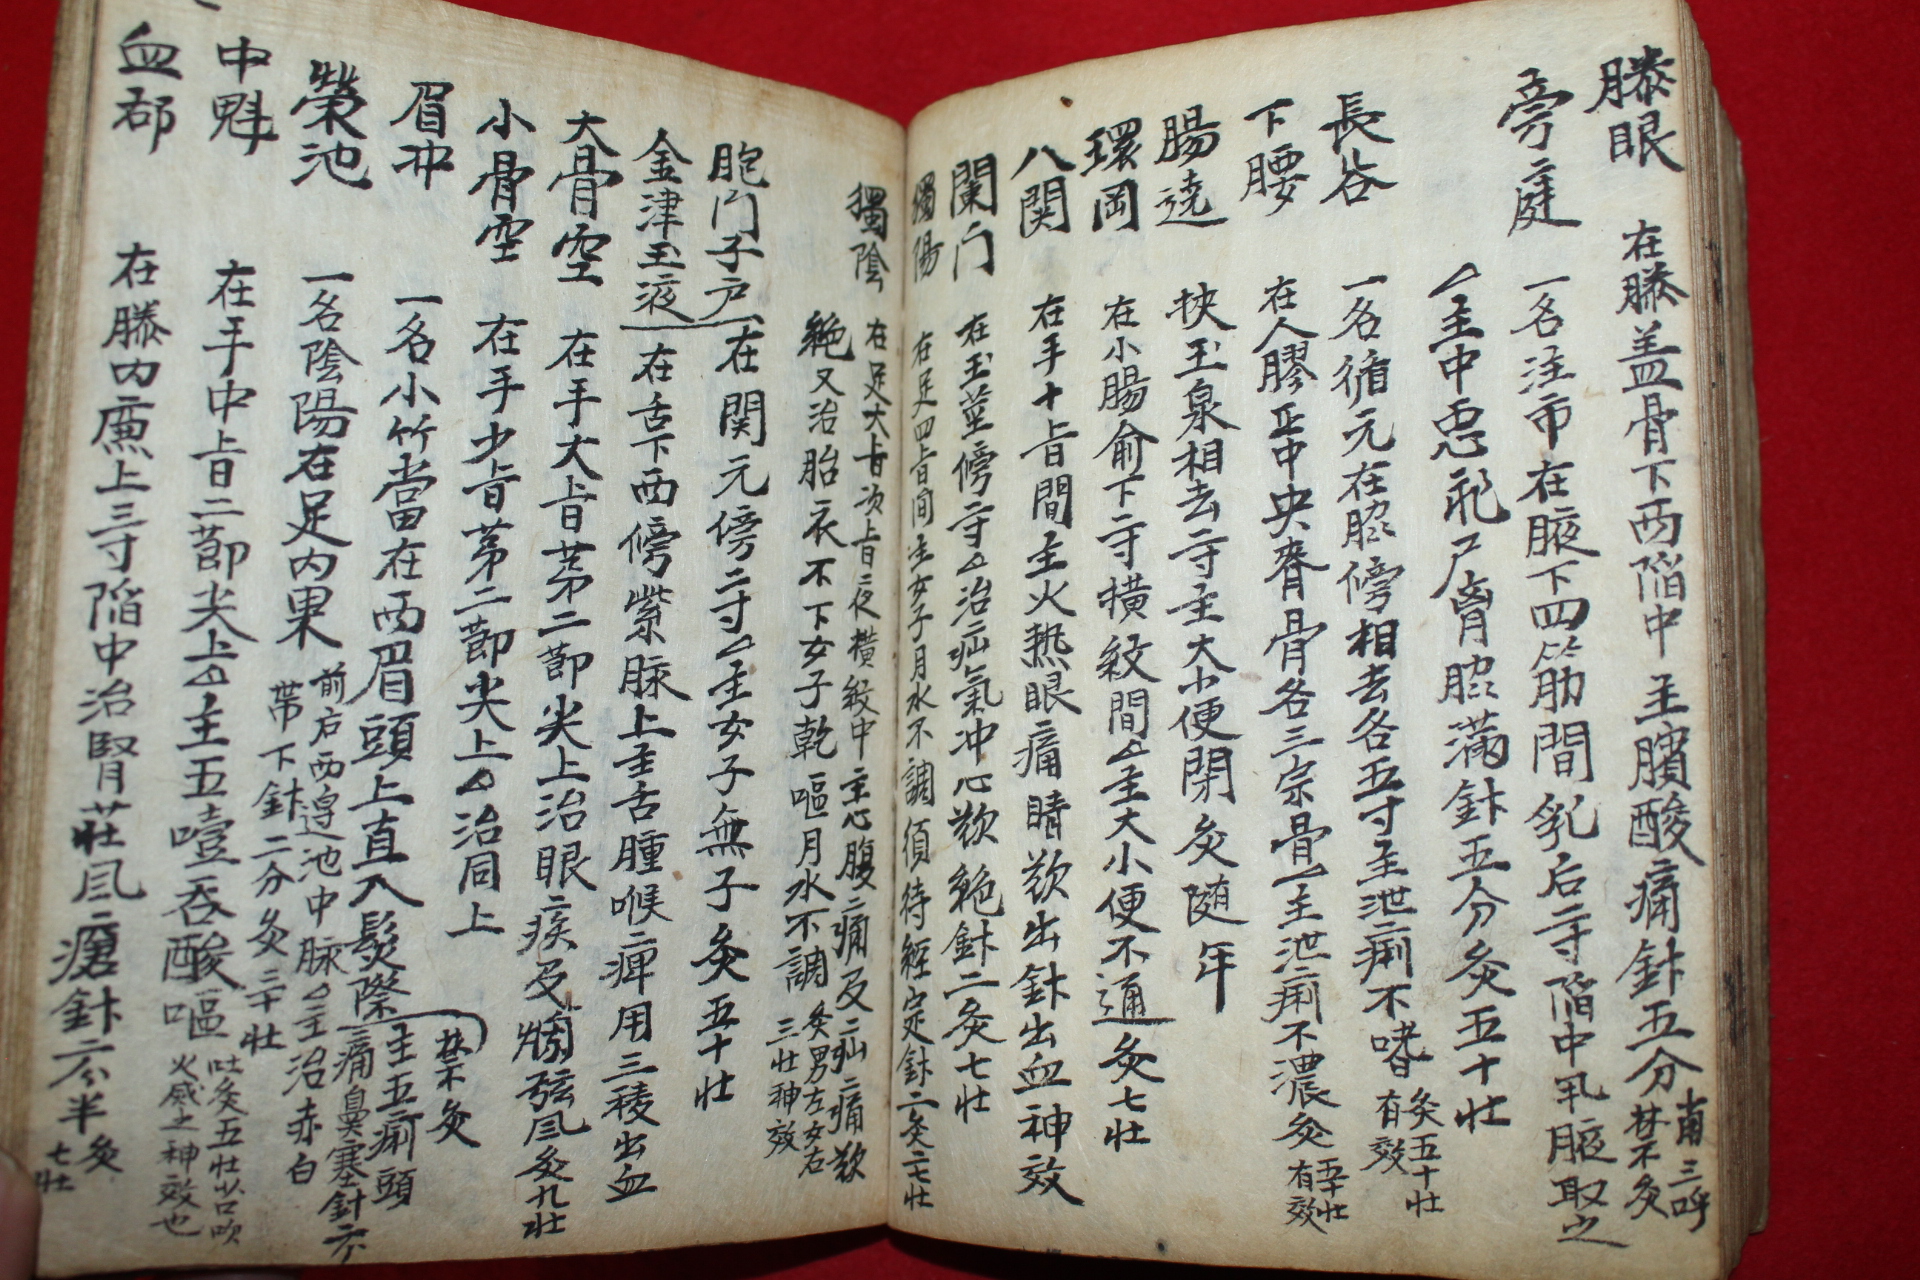 膝眼 在膝盖骨下两陷中主臏酸痛針五分留三呼禁灸
旁庭 一名注市在腋下四筋間乳后二寸陷中乳腋取之
△主中惡飛尸脅腔滿針五分灸五十壮
長谷 一名循元在脐傍相去各五寸主泄痢不嗜灸五十壮有效
下腰 在人膠正中央脊骨各三宗骨一主泄痢不濃灸五十壮有效
腸遶 挾玉泉相去二寸主大小便閉灸随年
環岡 在小腸俞下二寸横紋間△主大小便不通灸七壮
八関 在手十旨間主火热眼痛睛欲出針出血神效
闌门 在玉莖傍二寸△治疝氣冲心欲絶針二灸七壮
獨陽 在足四旨间主女子月水不調須待經定針二灸二七壮
獨陰 在足大旨次旨二夜横紋中主心腹痛及疝痛欲
絶又治胎衣不下女子乾嘔月水不調灸男左女右三壮神效
胞门子户 在関元傍二寸△主女子無子灸五十壮
金津玉液 在舌下两傍紫脉上主舌腫喉痺用三稜出血
大骨空 在手大旨苐二節尖上治眼疾及爛弦風灸九壮
小骨空 在手少旨苐二節尖上△治同上
眉冲 一名小竹當在两眉頭上直入髮際主五痢頭痛鼻塞針六分禁灸
榮池 一名陰陽在足内果前后两邉池中脉△主治赤白帯下針二分灸三十壮
中魁 在手中旨二節尖上△主五噎吞酸嘔吐灸五壮出吹火威之神效也
血郄 在膝内廉上三寸陷中治腎莊風瘡針六分半灸七壮